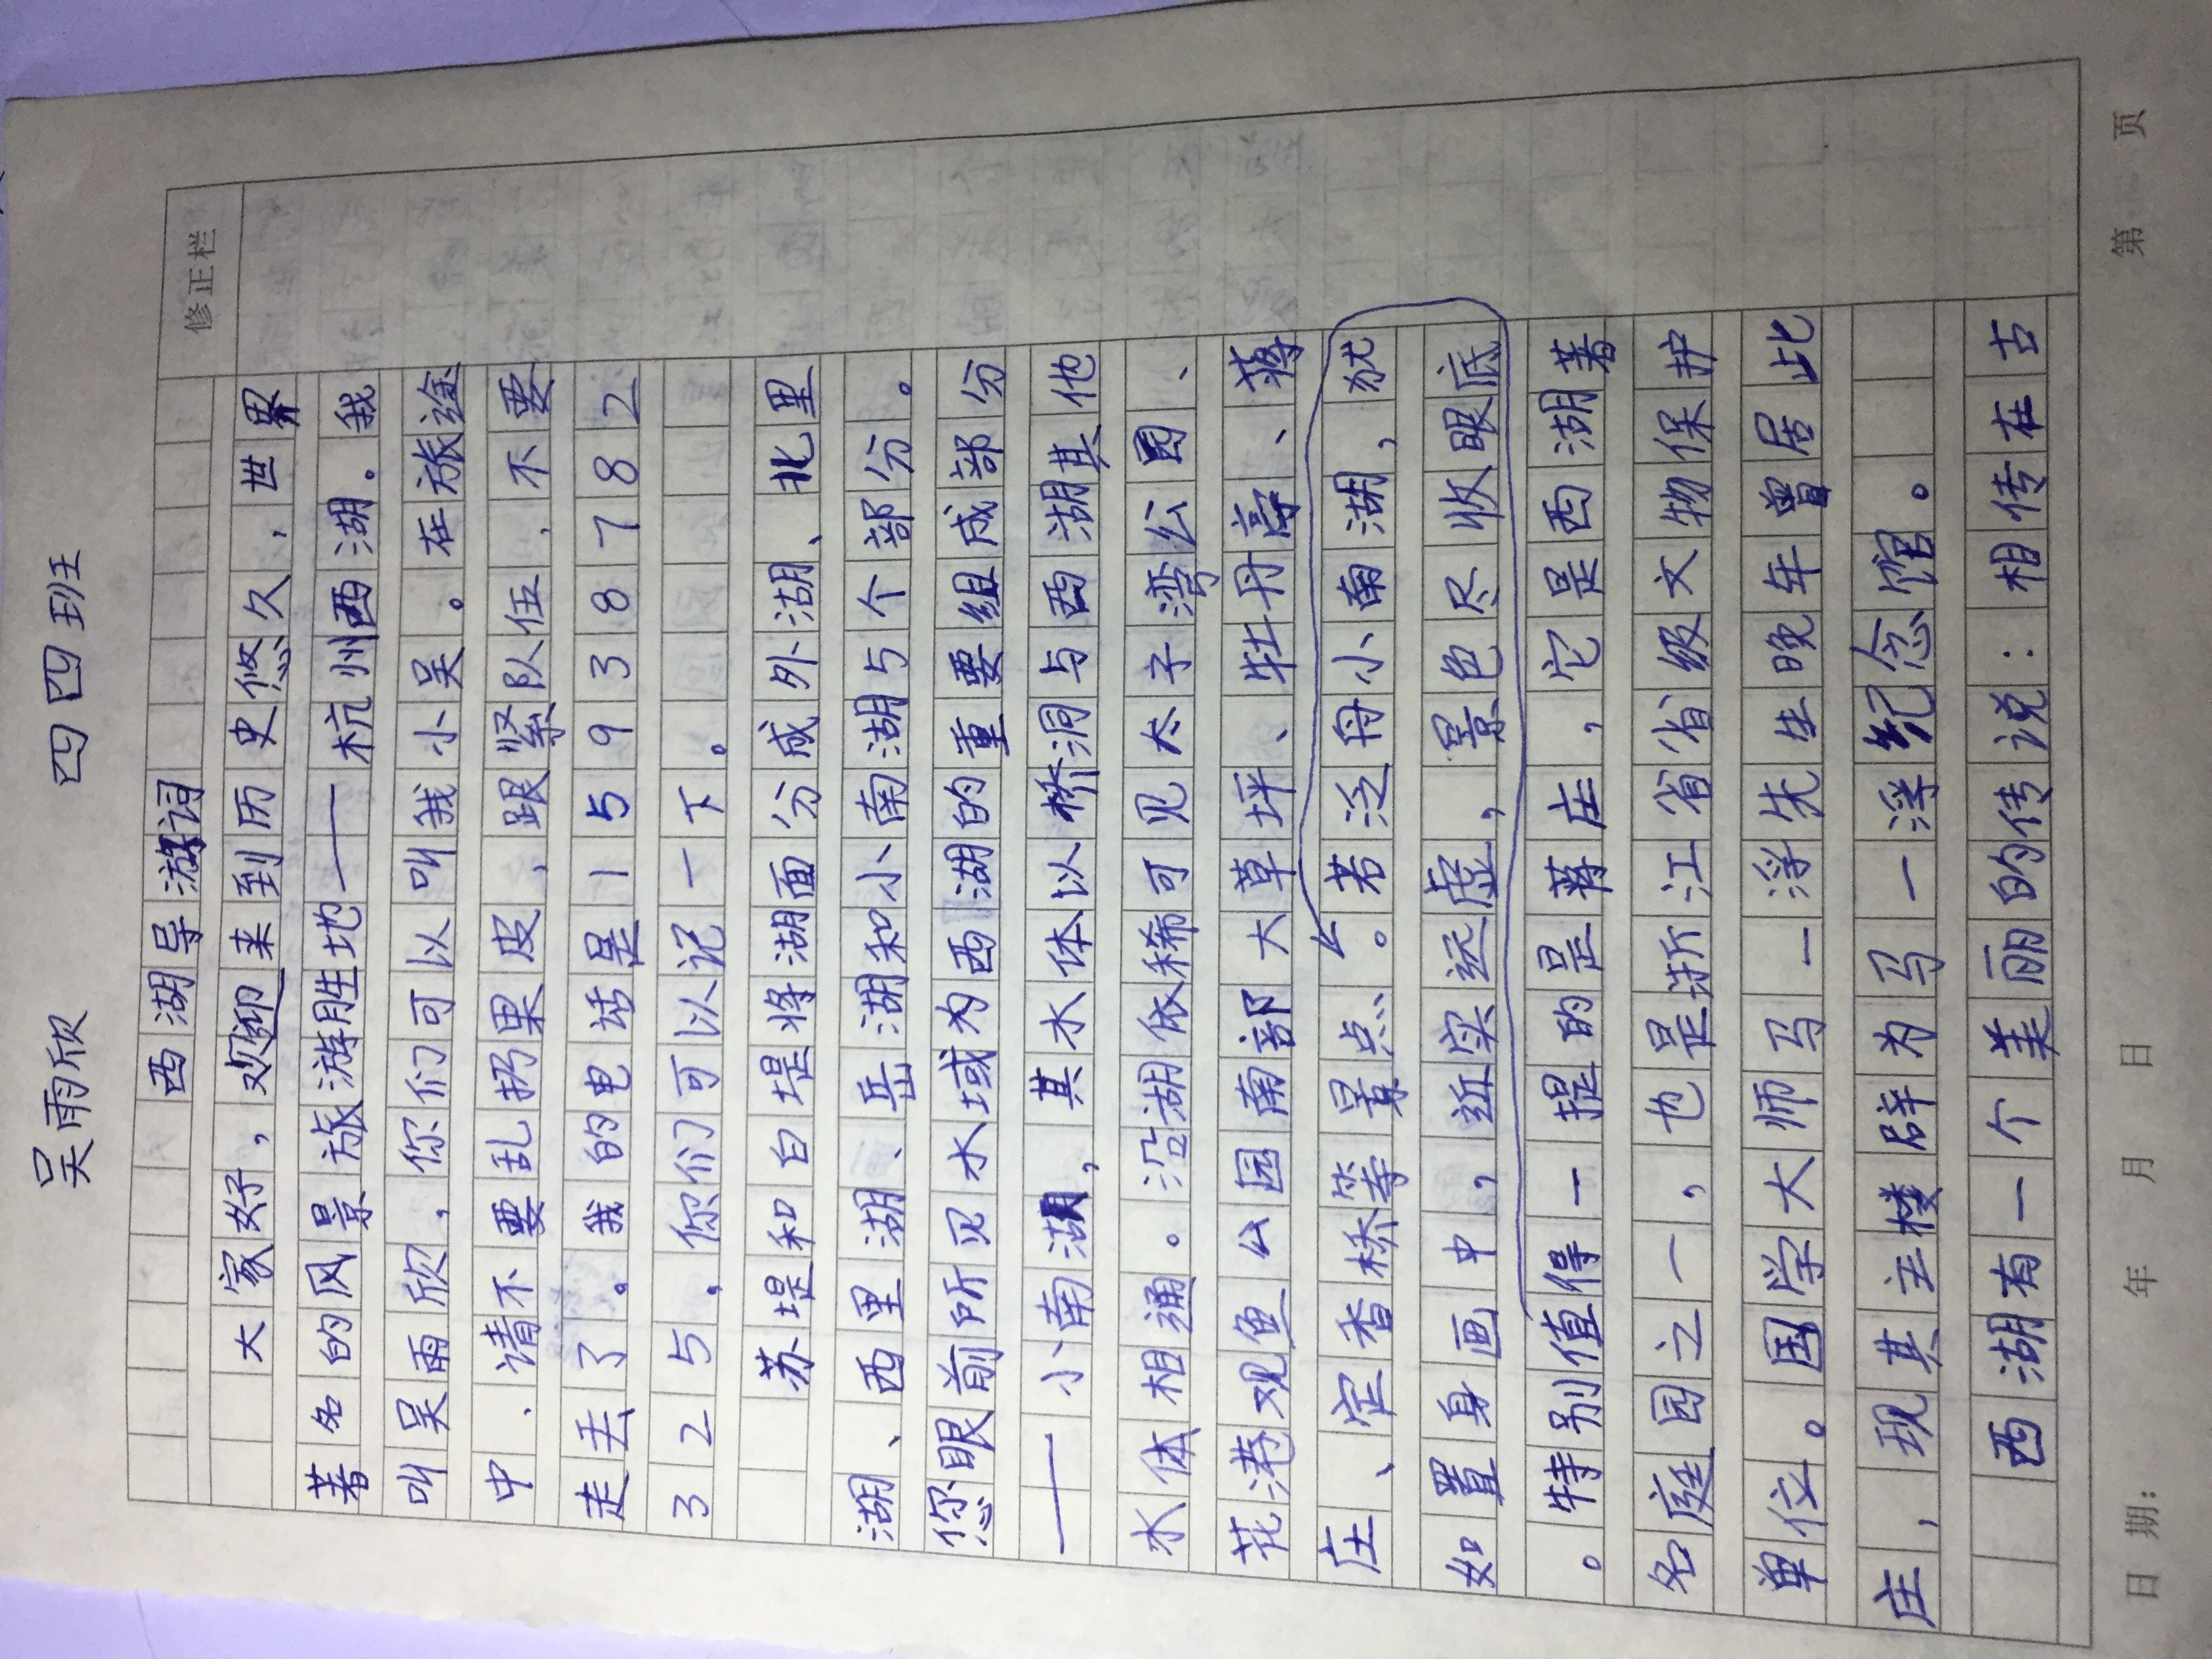 吴雨欣 四四班
修正栏
西湖导游词
大家好，欢迎来到历史悠久，世界
著名的风景旅游胜地——杭州西湖。我
叫吴雨欣，你们可以叫我小吴。在旅途
中，请不要乱扔果皮，跟紧队伍，不要
走丢了。我的电话是15938782
325，你们可以记一下。
苏堤和白堤将湖面分成外湖、北里
湖、西里湖、岳湖和小南湖5个部分。
您眼前所见水域为西湖的重要组成部分
——小南湖，其水体以桥洞与西湖其他
水体相通。沿湖依稀可见太子湾公园、
花港观鱼公园南部大草坪、牡丹亭、蒋
庄、定香桥等景点。若泛舟小南湖，犹
如置身画中，近实远虚，景色尽收眼底
。特别值得一提的是蒋庄，它是西湖著
名庭园之一，也是浙江省省级文物保护
单位。国学大师马一浮先生晚年曾居此
庄，现其主楼辟为马一浮纪念馆。
西湖有一个美丽的传说：相传在古
日期： 年 月 日 第 页